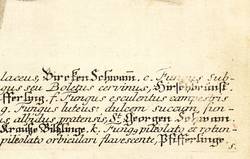 laceus, Bircken Schwam̄, c. Fungus sub-
gus seu Boletus cervinus, Hirschbrunst
Pfifferling, f. Fungus esculentus campestris
g. Fungus luteus dulcem succum, fun-
us albidus pratensis, St. Georgen Schwam
Krause Biltzlinge, k. Fung, pileolato et rotun-
pileolato orbiculari flavescente, Pfifferlinge